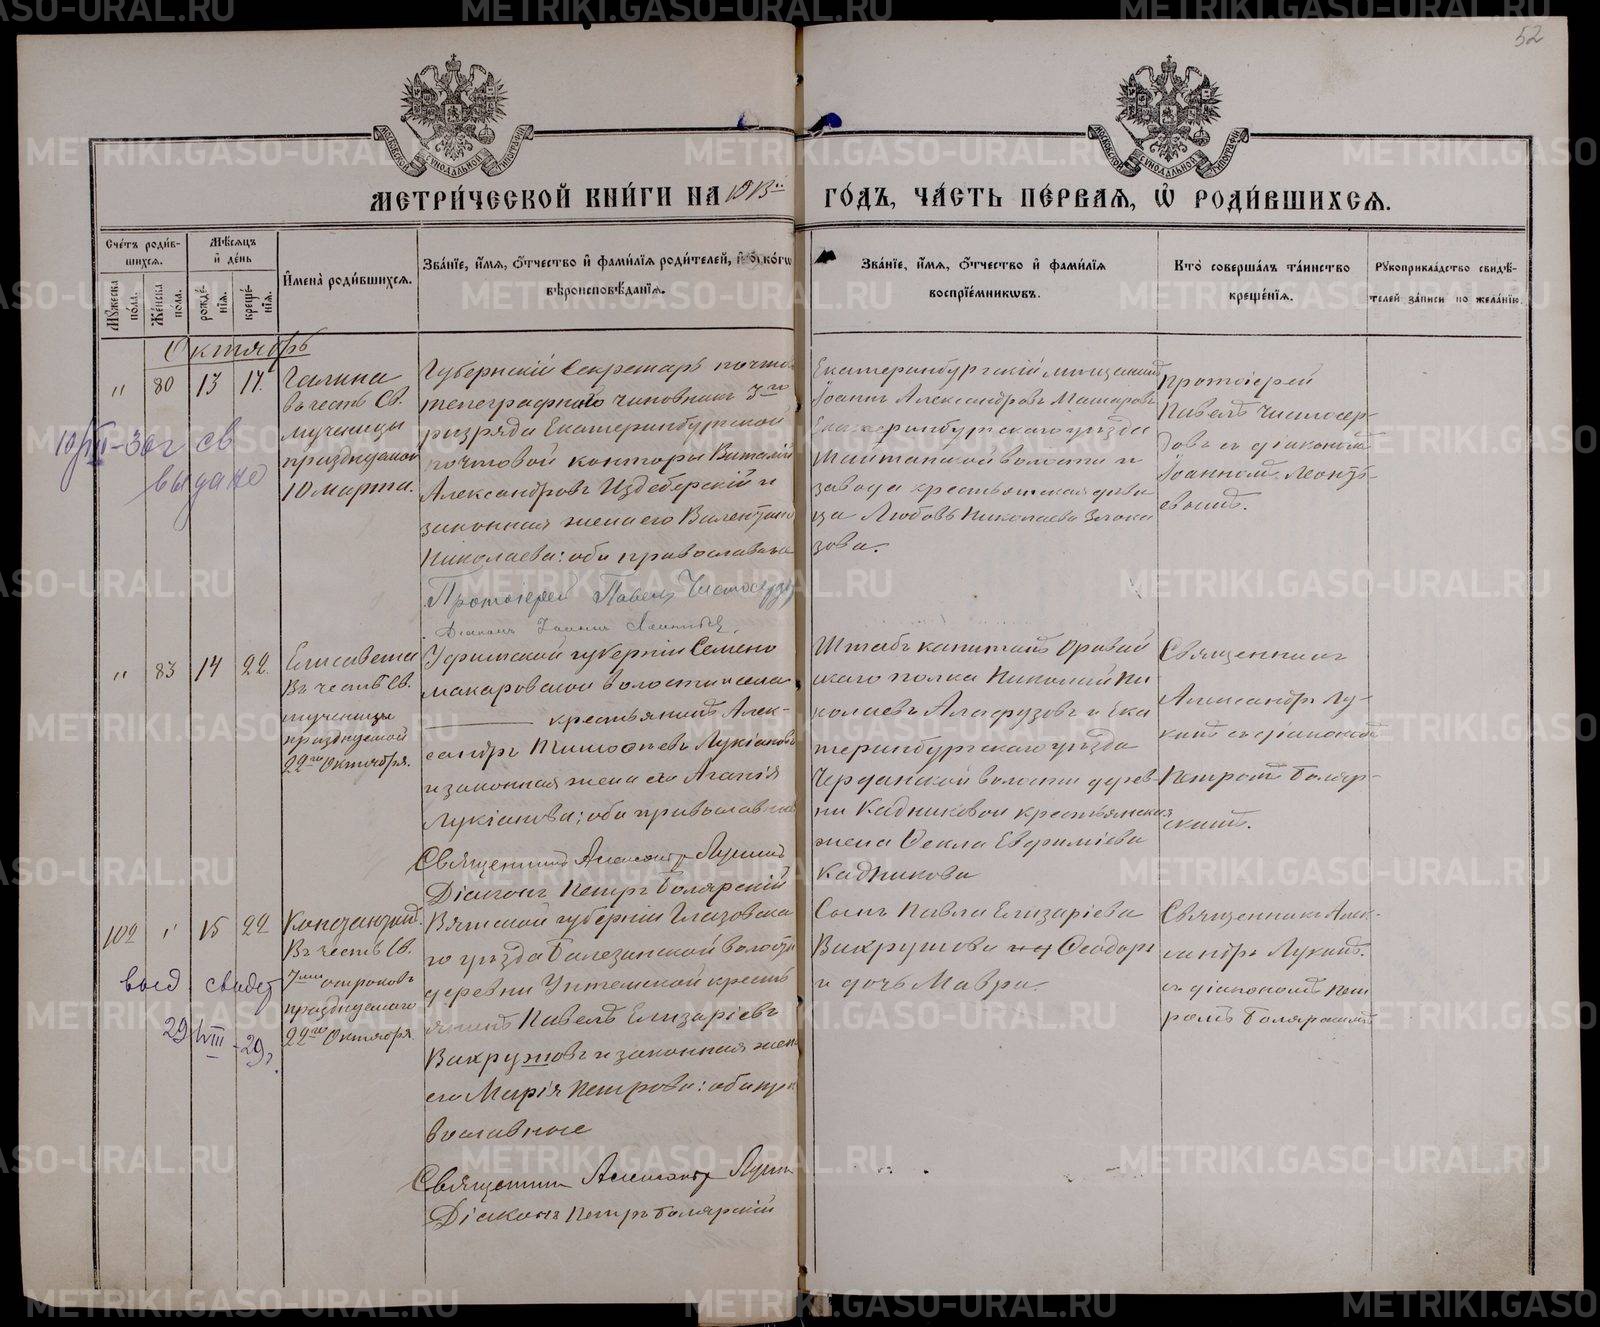 52
МЕТРИ́ЧЕСКОЙ КНИ́ГИ НА ГО́ДЪ, ЧА́СТЬ ПЕ́РВАЯ, Ѽ РОДИ́ВШИХСѦ.
Сче́тъ роди́вшихсѧ.
Мѣ́сѧцъ и҆ де́нь
И҆мена̀ роди́вшихсѧ.
Зва́нїе, и҆́мѧ, ѻ҆́тчество и҆ фами́лїѧ роди́телей, и҆ како́гѡ
вѣроисповѣ́данїѧ.
Зва́нїе, и҆́мѧ, ѻ҆́тчество и҆ фами́лїѧ
воспрїе́мникѡвъ.
Кто̀ соверша́лъ та́инство
креще́нїѧ.
Рꙋкоприкла́дство свидѣ́-
телей за́писи по жела́нїю.
Мꙋ́жеска по́ла.
Же́нска по́ла.
рожде́нїѧ.
креще́нїѧ.
Октябрь
" 80 13 17.
Галина
въ честь Св.
мученицы
празднуемой
10 марта.
Губернскій Секретарь почто
телеграфного чиновникъ 3го
разряда Екатеринбургской
почтовой конторы Виталій
Александровъ Издеберскій и
законная жена его Валентина
Николаева: оба православные
Протоіерей Павелъ Чистосердовъ
Діаконъ Іоаннъ Леонтьевъ.
Екатеринбургскій мѣщанинъ
Іоаннъ Александровъ Макаровъ
Екатеринбургскаго уѣзда
Шайтанской волости и
завода крестьянская дѣви
ца Любовь Николаева Злока
зова.
Протоіерей
Павелъ Чистосер-
довъ съ діакономъ
Іоанномъ Леонть-
евымъ.
выдано
" 83 14 22.
Елисавета
Въ честь Св.
мученицы
празднуемой
22го Октября.
Уфимской губерніи Семено
макаровской волости и села
крестьянинъ Алек-
сандръ Тимоѳеевъ Лукіановъ
и законная жена его Агапія
Лукіанова; оба православные
Священникъ Александръ Лукинъ
Діаконъ Петръ Боляр​скій
Штабъ капитанъ Оровай
скаго полка Николай Ни
колаевъ Алафузовъ и Ека
теринбургскаго уѣзда
волости дерев-
ни Кадниковой крестьянская
жена Ѳекла Евфиміева
Кадникова
Священникъ
Александръ Лу-
кинъ съ діакономъ
Петромъ Боляр-
скимъ.
102 " 15 22
Константинъ
Въ честь Св.
7ми отроковъ
празднуемаго
22го Октября
Вятской губерніи Глазовска
го уѣзда Балезинской волости
деревни крестья
янинъ Павелъ Елизаріевъ
Вахрушовъ и законная жена
его Марія Петрова: оба пра
вославные
Священникъ Александръ Лукинъ
Діаконъ Петръ Болярскій
Сынъ Павла Елизаріева
Вахрушова Ѳеодоръ
и дочь Мавра.
Священникъ Алек-
сандръ Лукинъ.
съ діакономъ Пет
ромъ Болярскимъ
выд свидет
29/VIII-29г.